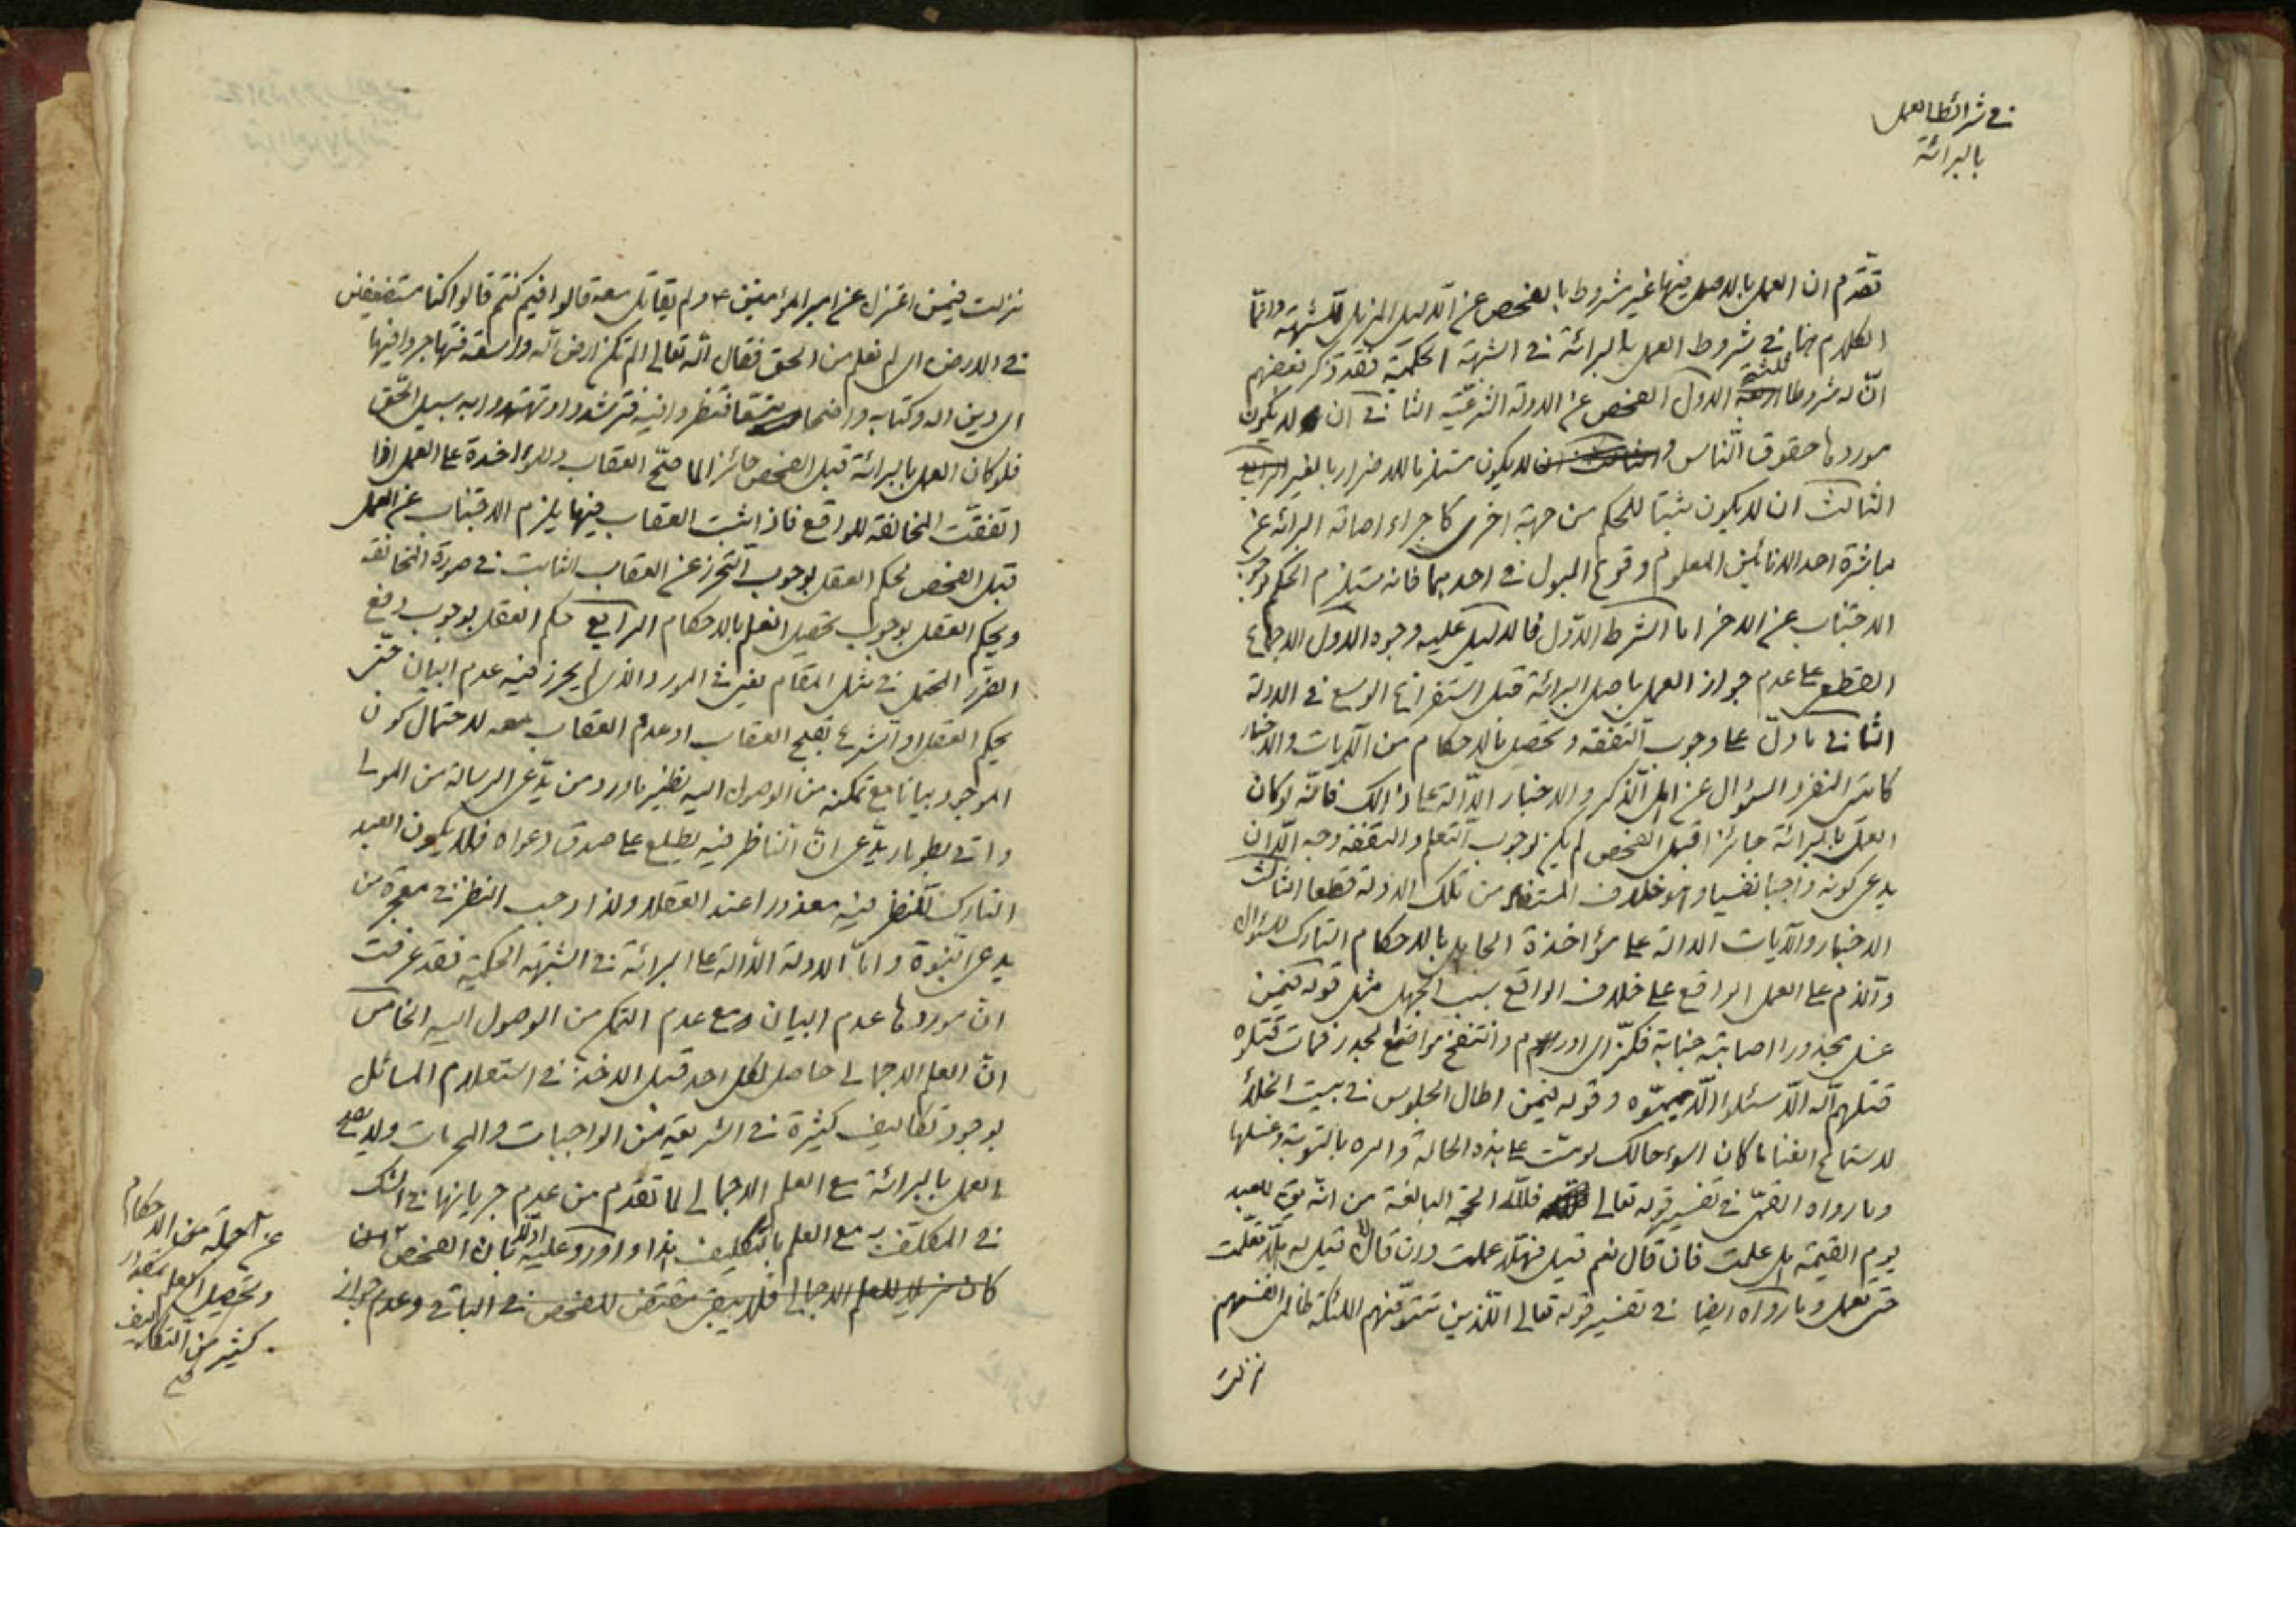 في شرائط العمل
بالبرائة
تقدم ان العمل بالاصل فيها غير مشروط بالفحص عن الدليل المزيل للشبهة وانما
الكلام هنا في شروط العمل بالبرائة في الشبهة الحكمية فقد ذكر بعضهم
ان له شروطا ثلثة الاول الفحص عن الادلة الشرعية الثاني ان لا يكون
موردها حقوق الناس و لا يكون مستلزما للاضرار بالغير
الثالث ان لا يكون مثبتا للحكم من جهة اخرى كاجراء اصالة البرائة عن
مباشرة احد الانائين المعلوم وقوع البول في احدهما فانه يستلزم الحكم بوجوب
الاجتناب عن الاخر اما الشرط الاول فالدليل عليه وجوه الاول الاجماع
القطعي على عدم جواز العمل باصل البرائة قبل استفراغ الوسع في الادلة
الثاني ما دل على وجوب التفقه وتحصيل الاحكام من الآيات والاخبار
كآيتي النفر والسؤال عن اهل الذكر والاخبار الدالة على ذالك فانه لو كان
العمل بالبرائة جائزا قبل الفحص لم يكن لوجوب التعلم والتفقه وجه الا ان
يدعى كونه واجبا نفسيا وهو خلاف المستفاد من تلك الادلة قطعا الثالث
الاخبار والآيات الدالة على مؤاخذة الجاهل بالاحكام التارك للسؤال
والذم على العمل الواقع على خلاف الواقع بسبب الجهل مثل قوله فيمن
غسل مجذورا اصابته جنابة فكز اي اورم وانتفخ مواضع الجدر فمات قتلوه
قتلهم الله الا سئلوا الا يمموه وقوله فيمن اطال الجلوس في بيت الخلاء
لاستماع الغناء ما كان اسوء حالك لو مت على هذه الحالة وامره بالتوبة وغسلها
وما رواه القمي في تفسير قوله تعالى فلله الحجة البالغة من انه يق للعبد
يوم القيمة هل علمت فان قال نعم قيل فهلا عملت وان قال لا قيل له هلا تعلمت
حتى تعمل وما رواه ايضا في تفسير قوله تعالى الذين تتوفيهم الملئكة ظالمي انفسهم
نزلت
نزلت فيمن اعتزل عن امير المؤمنين ع ولم يقاتل معه قالوا فيم كنتم قالوا كنا مستضعفين
في الارض اي لم نعلم من الحق فقال الله تعالى الم تكن ارض الله واسعة فتهاجروا فيها
اي دين الله وكتابه واضحا متسعا فتنظروا فيه فترشدوا وتهتدوا به سبيل الحق
فلو كان العمل بالبرائة قبل الفحص جائزا لما صح العقاب والمؤاخذة على العمل اذا
اتفقت المخالفة للواقع فاذا ثبت العقاب فيها يلزم الاجتناب عن العمل
قبل الفحص لحكم العقل بوجوب التحرز عن العقاب الثابت في صورة المخالفة
ويحكم العقل بوجوب تحصيل العلم بالاحكام الرابع حكم العقل بوجوب دفع
الضرر المحتمل في مثل المقام يعني في المورد الذي لم يحرز فيه عدم البيان حتى
يحكم العقل او الشرع بقبح العقاب او عدم العقاب معه لاحتمال كون
الموجود بيانا مع تمكنه من الوصول اليه نظير ما ورد من يدعى الرسالة من المولى
واتى بطومار يدعى ان الناظر فيه يطلع على صدق دعواه فلا يكون العبد
التارك للنظر فيه معذورا عند العقلاء ولذا وجب النظر في معجزة من
يدعى النبوة واما الادلة الدالة على البرائة في الشبهة الحكمية فقد عرفت
ان موردها عدم البيان ومع عدم التمكن من الوصول اليه الخامس
ان العلم الاجمالي حاصل لكل احد قبل الاخذ في استعلام المسائل
بوجود تكاليف كثيرة في الشريعة من الواجبات والمحرمات ولا يصح
العمل بالبرائة مع العلم الاجمالي لما تقدم من عدم جريانها في الشك
في المكلف به مع العلم بالتكليف هذا واورد عليه اولا بان الفحص
كان مزيلا للعلم الاجمالي فلا يبقى مقتض للفحص في الباقي وعدم جواز
عن جملة من الاحكام
وتحصيل العلم بمقدار
كثير من التكاليف